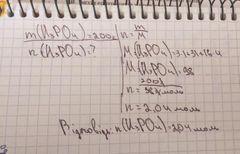 m(H₃PO₄)=200г
n(H₃PO₄)-?
n=m/M
M(H₃PO₄)=3·1+31+16·4
M(H₃PO₄)=98
n=200г/98г/моль
n=2,04 моль
Відповідь: n(H₃PO₄)=2,04 моль